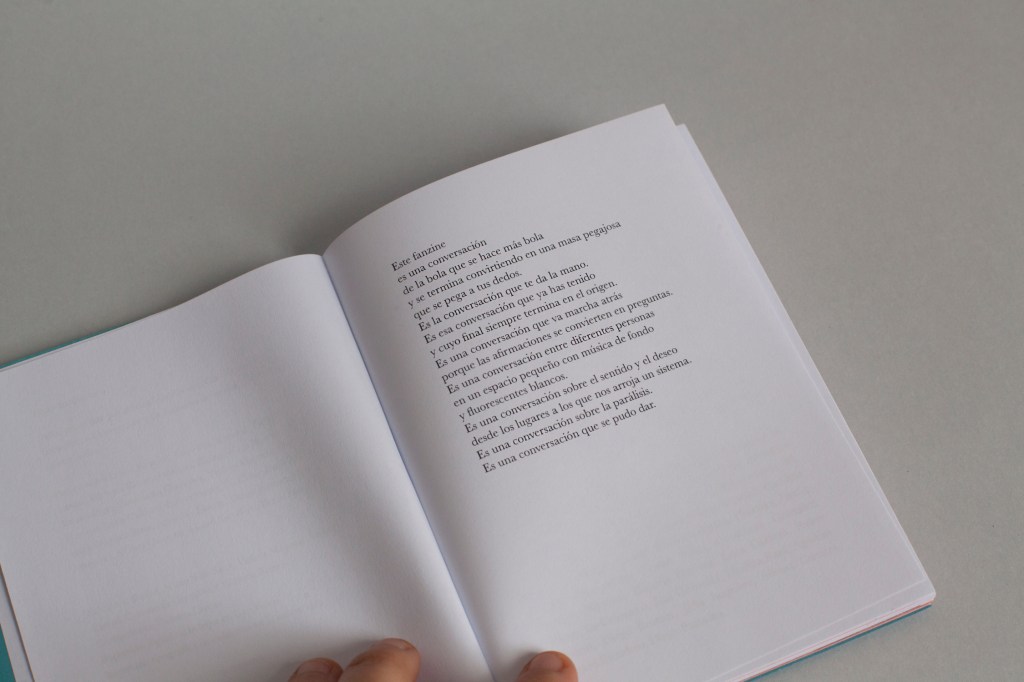 Este fanzine
es una conversación
de la bola que se hace más bola
y se termina convirtiendo en una masa pegajosa
que se pega a tus dedos.
Es la conversación que te da la mano.
Es esa conversación que ya has tenido
y cuyo final siempre termina en el origen.
Es una conversación que va marcha atrás
porque las afirmaciones se convierten en preguntas.
Es una conversación entre diferentes personas
en un espacio pequeño con música de fondo
y fluorescentes blancos.
Es una conversación sobre el sentido y el deseo
desde los lugares a los que nos arroja un sistema.
Es una conversación sobre la parálisis.
Es una conversación que se pudo dar.